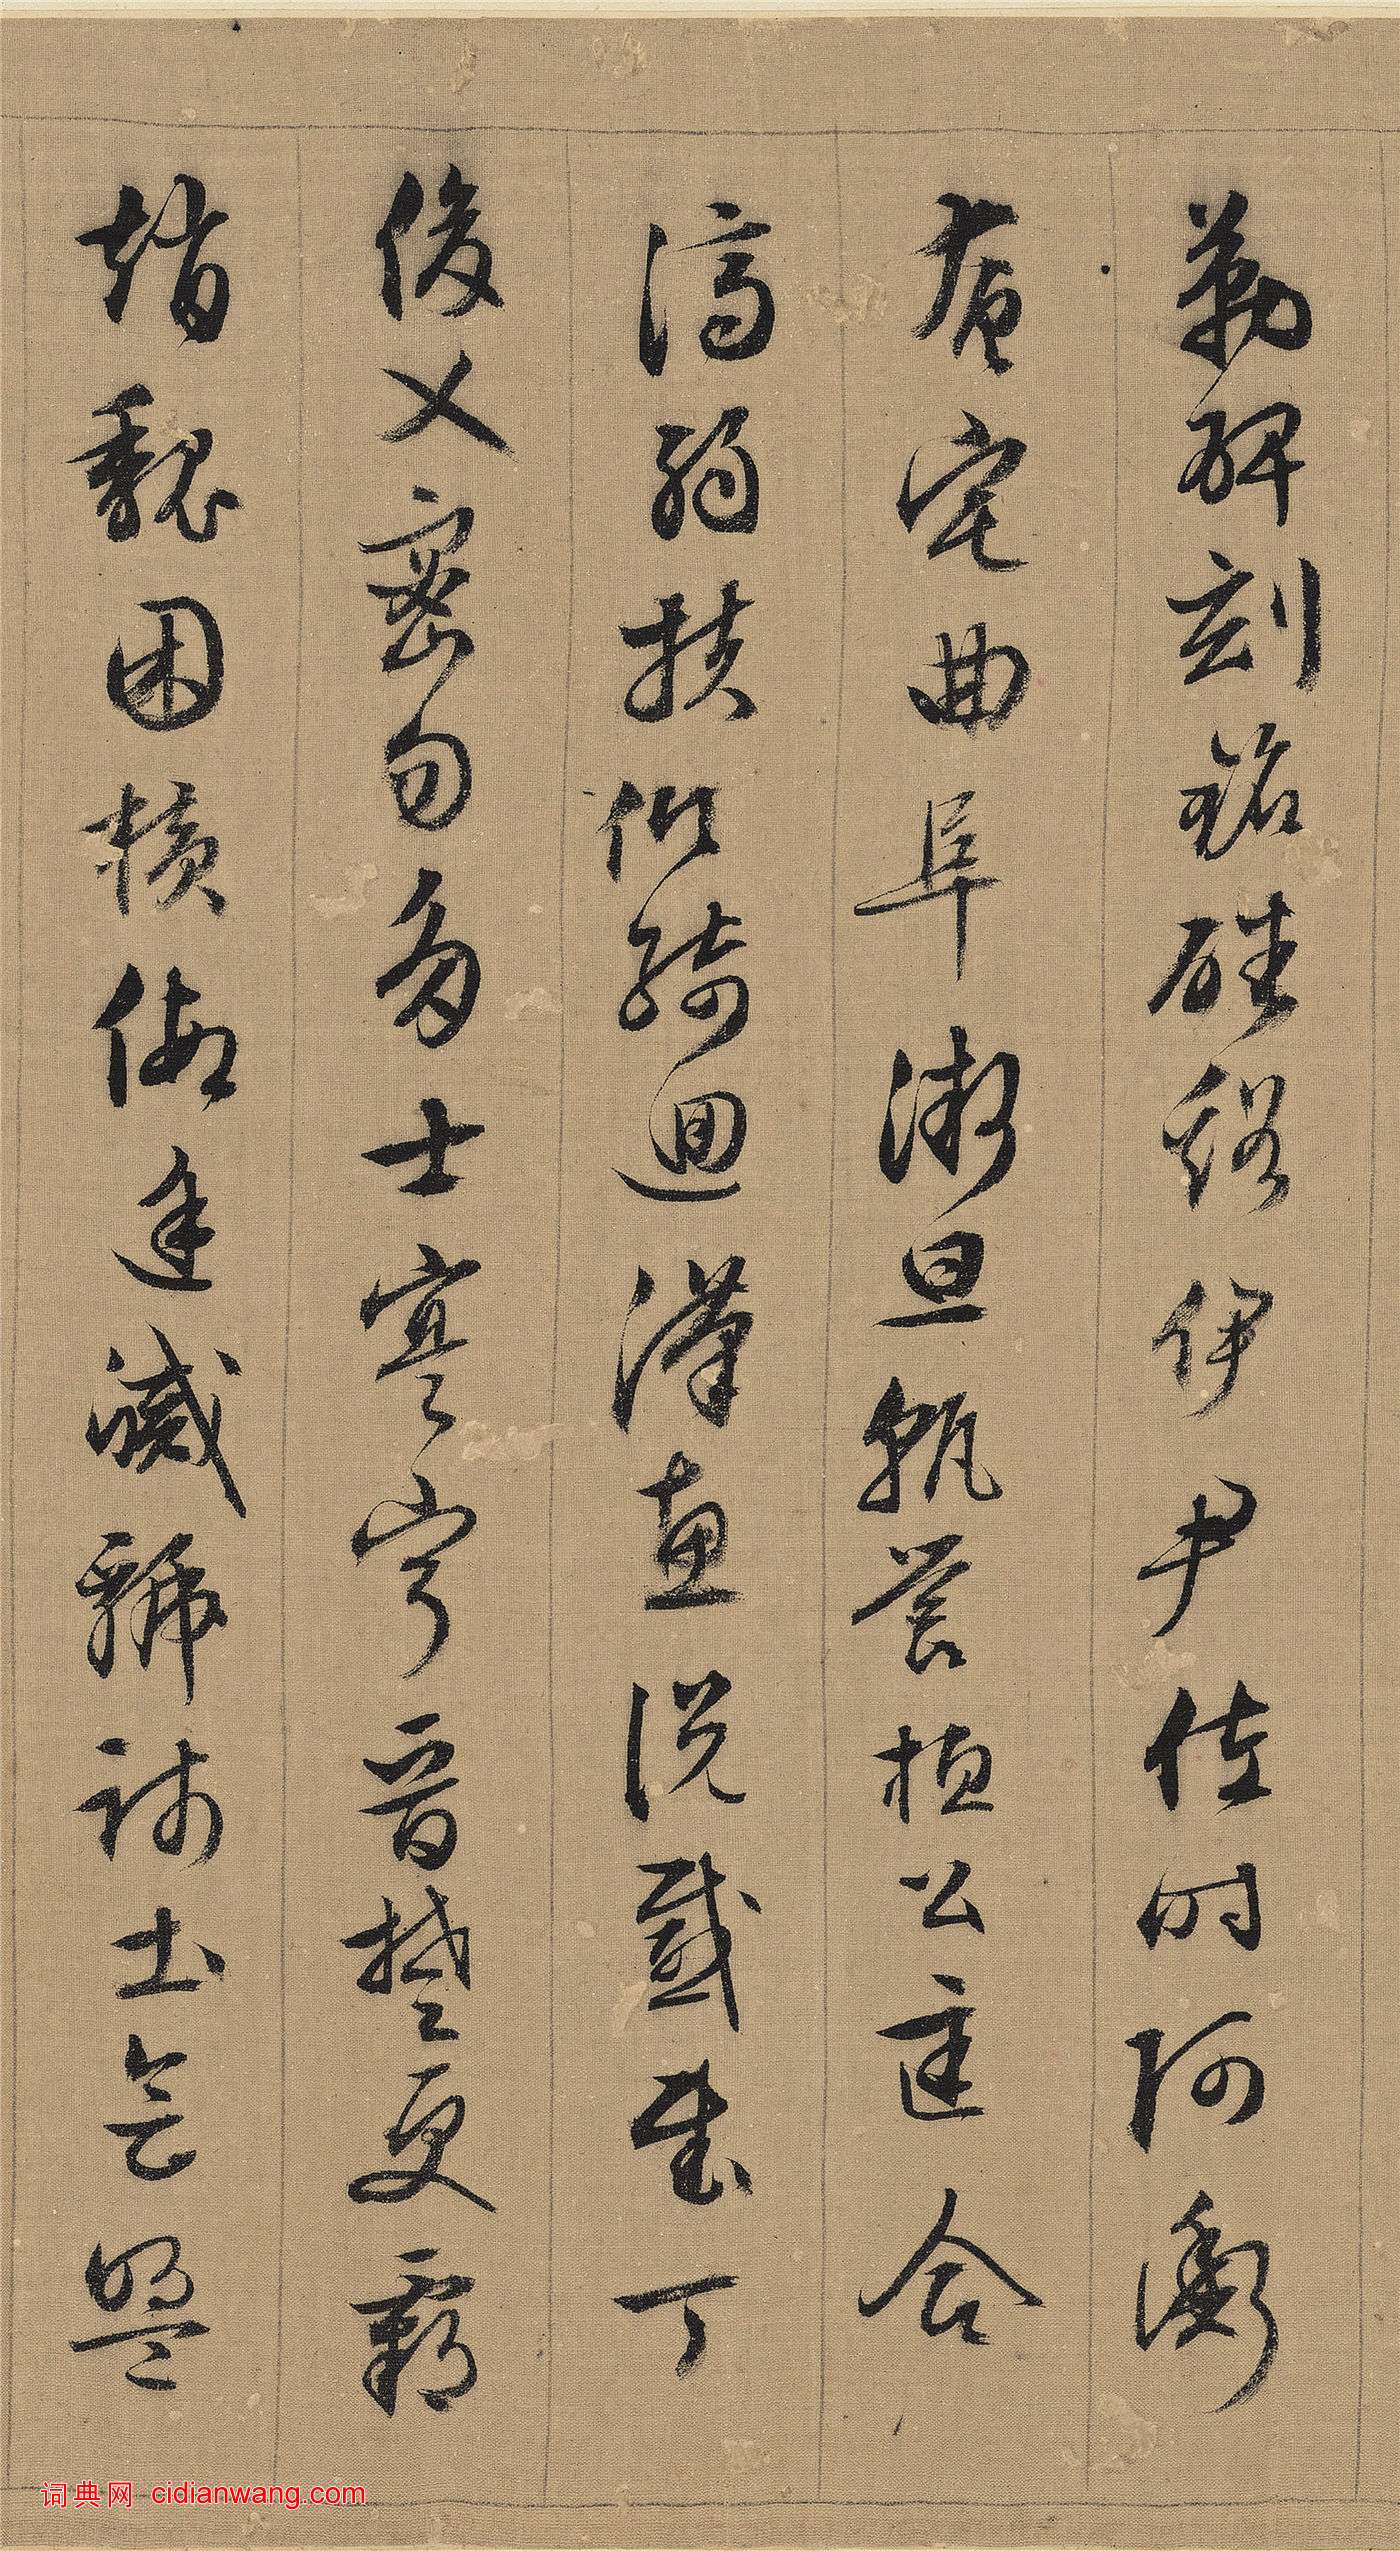 勒碑刻銘磻谿伊尹佐時阿衡
奄宅曲阜微旦孰營桓公匡合
濟弱扶傾綺迴漢惠說感武丁
俊乂密勿多士寔寧晉楚更霸
趙魏困橫假途滅虢踐土會盟
词典网 cidianwang.com